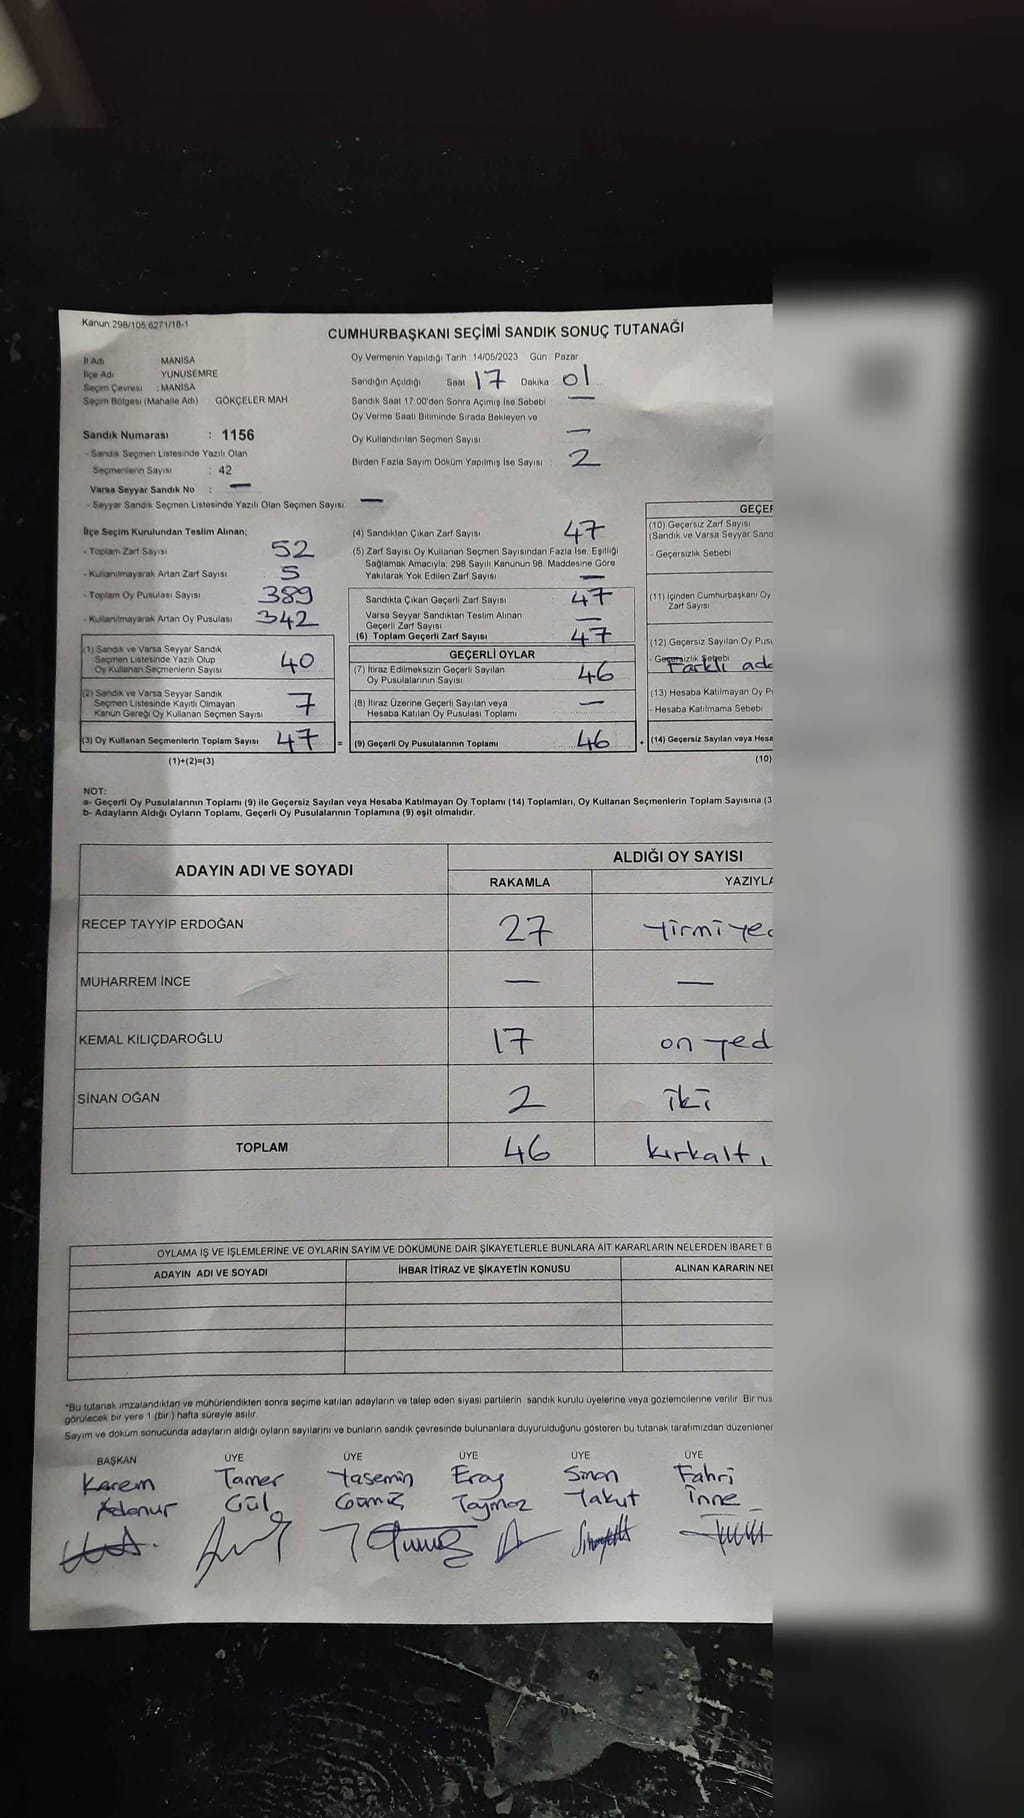 Kanun 298/105,6271/18-1
CUMHURBAŞKANI SEÇİMİ SANDIK SONUÇ TUTANAĞI
İl Adı : MANİSA
İlçe Adı : YUNUSEMRE
Seçim Çevresi : MANİSA
Seçim Bölgesi (Mahalle Adı) GÖKÇELER MAH
Sandık Numarası : 1156
- Sandık Seçmen Listesinde Yazılı Olan
Seçmenlerin Sayısı : 42
Varsa Seyyar Sandık No : —
- Seyyar Sandık Seçmen Listesinde Yazılı Olan Seçmen Sayısı: —
Oy Vermenin Yapıldığı Tarih :14/05/2023 Gün : Pazar
Sandığın Açıldığı Saat 17 Dakika 01
Sandık Saat 17:00'den Sonra Açılmış İse Sebebi : —
Oy Verme Saati Bitiminde Sırada Bekleyen ve
Oy Kullandırılan Seçmen Sayısı —
Birden Fazla Sayım Döküm Yapılmış İse Sayısı : 2
İlçe Seçim Kurulundan Teslim Alınan;
- Toplam Zarf Sayısı 52
- Kullanılmayarak Artan Zarf Sayısı 5
- Toplam Oy Pusulası Sayısı 389
- Kullanılmayarak Artan Oy Pusulası 342
(1) Sandık ve Varsa Seyyar Sandık
Seçmen Listesinde Yazılı Olup
Oy Kullanan Seçmenlerin Sayısı 40
(2) Sandık ve Varsa Seyyar Sandık
Seçmen Listesinde Kayıtlı Olmayan
Kanun Gereği Oy Kullanan Seçmen Sayısı 7
(3) Oy Kullanan Seçmenlerin Toplam Sayısı 47 =
(1)+(2)=(3)
(4) Sandıktan Çıkan Zarf Sayısı 47
(5) Zarf Sayısı Oy Kullanan Seçmen Sayısından Fazla İse, Eşitliği
Sağlamak Amacıyla, 298 Sayılı Kanunun 98. Maddesine Göre
Yakılarak Yok Edilen Zarf Sayısı —
Sandıkta Çıkan Geçerli Zarf Sayısı 47
Varsa Seyyar Sandıktan Teslim Alınan
Geçerli Zarf Sayısı —
(6) Toplam Geçerli Zarf Sayısı 47
GEÇERLİ OYLAR
(7) İtiraz Edilmeksizin Geçerli Sayılan
Oy Pusulalarının Sayısı 46
(8) İtiraz Üzerine Geçerli Sayılan veya
Hesaba Katılan Oy Pusulası Toplamı —
(9) Geçerli Oy Pusulalarının Toplamı 46 +
GEÇER
(10) Geçersiz Zarf Sayısı
(Sandık ve Varsa Seyyar Sand
- Geçersizlik Sebebi
(11) İçinden Cumhurbaşkanı Oy
Zarf Sayısı
(12) Geçersiz Sayılan Oy Pusu
- Geçersizlik Sebebi
Farklı ada
(13) Hesaba Katılmayan Oy P
- Hesaba Katılmama Sebebi
(14) Geçersiz Sayılan veya Hesa
(10)
NOT:
a- Geçerli Oy Pusulalarının Toplamı (9) ile Geçersiz Sayılan veya Hesaba Katılmayan Oy Toplamı (14) Toplamları, Oy Kullanan Seçmenlerin Toplam Sayısına (3
b- Adayların Aldığı Oyların Toplamı, Geçerli Oy Pusulalarının Toplamına (9) eşit olmalıdır.
ADAYIN ADI VE SOYADI
ALDIĞI OY SAYISI
RAKAMLA YAZIYLA
RECEP TAYYİP ERDOĞAN 27 Yirmi yed
MUHARREM İNCE — —
KEMAL KILIÇDAROĞLU 17 on yed
SİNAN OĞAN 2 iki
TOPLAM 46 kırkaltı
OYLAMA İŞ VE İŞLEMLERİNE VE OYLARIN SAYIM VE DÖKÜMÜNE DAİR ŞİKAYETLERLE BUNLARA AİT KARARLARIN NELERDEN İBARET B
ADAYIN ADI VE SOYADI İHBAR İTİRAZ VE ŞİKAYETİN KONUSU ALINAN KARARIN NE
"Bu tutanak imzalandıktan ve mühürlendikten sonra seçime katılan adayların ve talep eden siyasi partilerin sandık kurulu üyelerine veya gözlemcilerine verilir. Bir nüs
görülecek bir yere 1 (bir) hafta süreyle asılır.
Sayım ve döküm sonucunda adayların aldığı oyların sayılarını ve bunların sandık çevresinde bulunanlara duyurulduğunu gösteren bu tutanak tarafımızdan düzenlener
BAŞKAN ÜYE ÜYE ÜYE ÜYE ÜYE
Kerem Tamer Yasemin Eray Sinan Fahri
Adanur Gül Gümüş Taymaz Yakut İnne